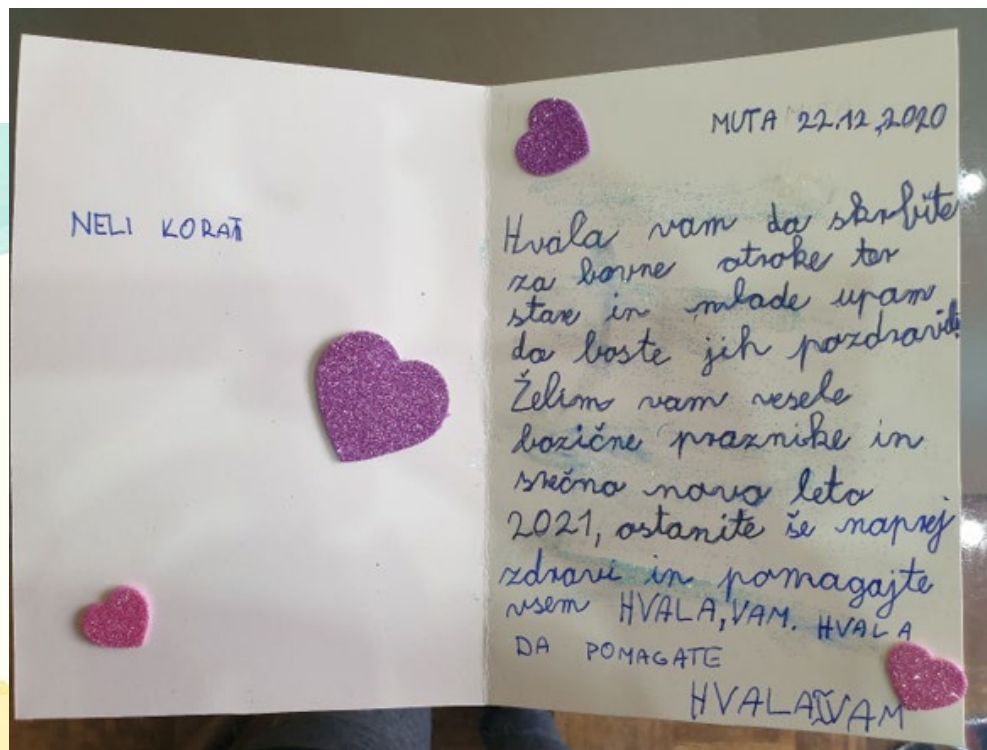 NELI KORAT
MUTA 22.12.2020
Hvala vam da skrbite
za bovne otroke ter
stare in mlade upam
da boste jih pozdravili.
Želim vam vesele
bozične praznike in
srečno novo leto
2021, ostanite še naprej
zdravi in pomagajte
vsem HVALA, VAM. HVALA
DA POMAGATE
HVALA VAM